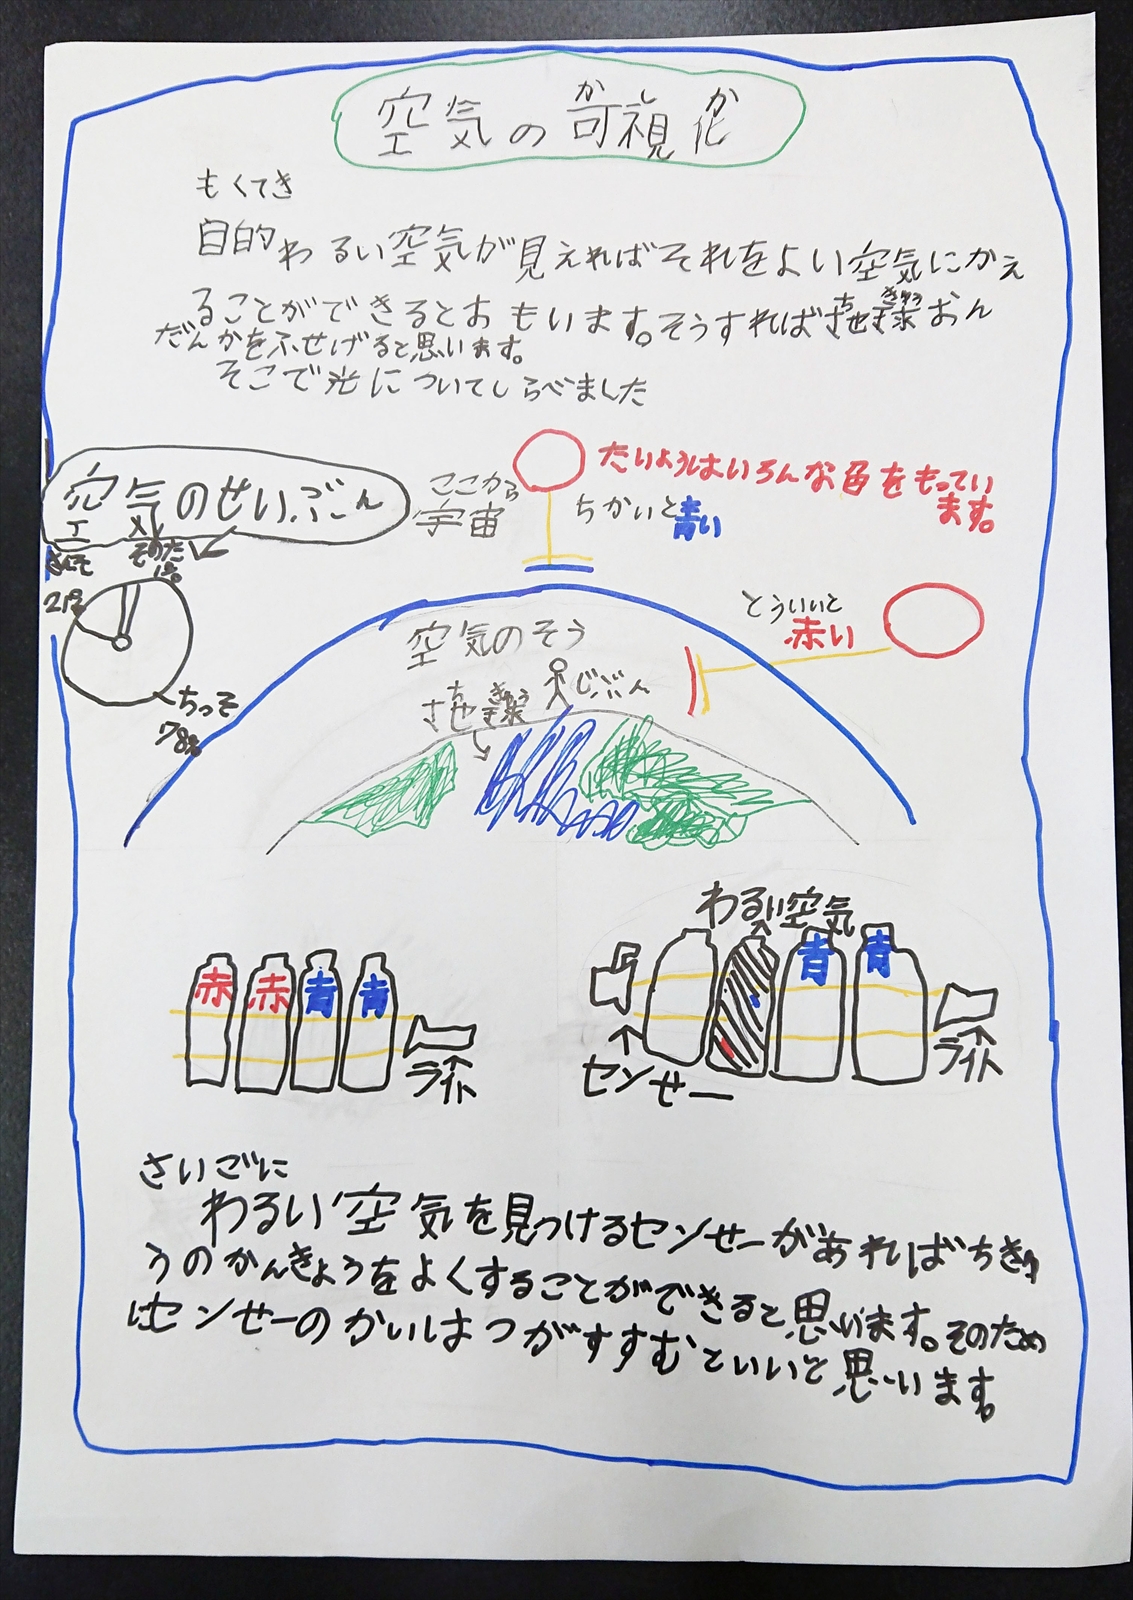 空気の可視化
かしか
もくてき
目的わるい空気が見えればそれをよい空気にかえ
ることができるとおもいます。そうすれば地球おん
ちきゅう
だんかをふせげると思います。
そこで光についてしらべました
空気のせいぶん
さんそ
21%
そのた
1%
ちっそ
78%
ここから
宇宙
たいようはいろんな色をもってい
ます。
ちかいと
青い
とういいと
赤い
空気のそう
ちきゅう
地球
じぶん
赤 赤 青 青
ライト
わるい空気
青 青
センサー
ライト
さいごに
わるい空気を見つけるセンサーがあればちきゅ
うのかんきょうをよくすることができると思います。そのため
はセンサーのかいはつがすすむといいと思います。